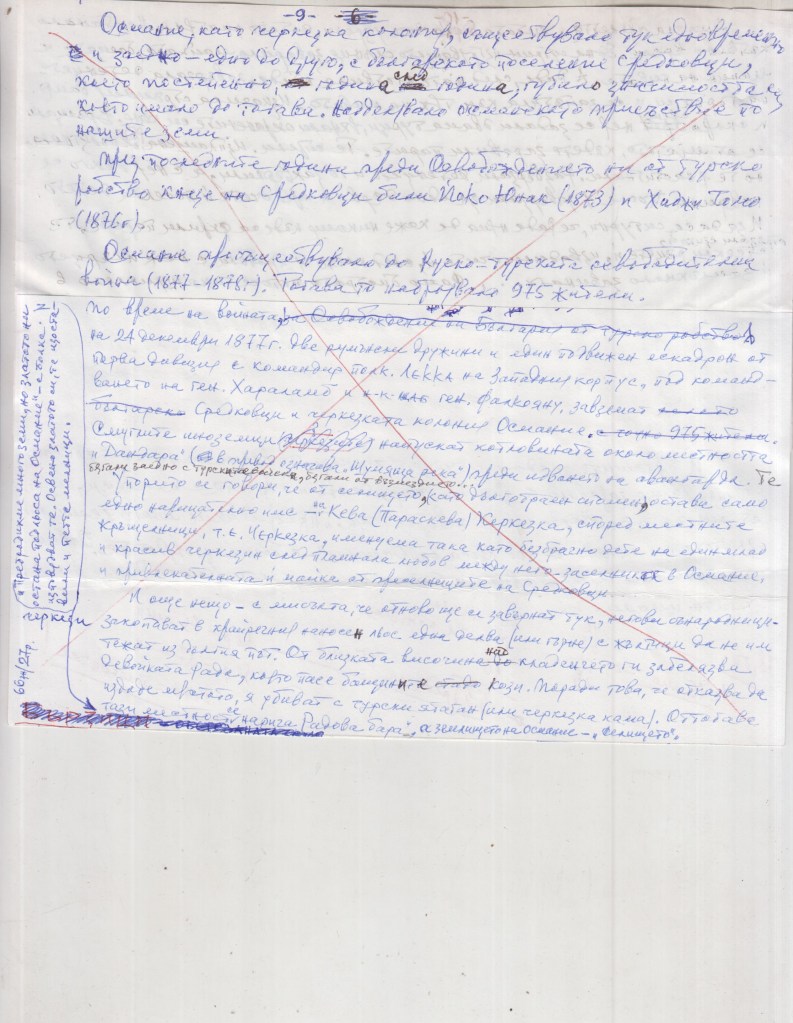 -9-
Османие, като черкезка колония, съществувало тук едновременно
и заедно – едно до друго, с българското поселение Средковци,
което постепенно, година след година, губило значимостта си,
която имало до тогава. Надделявало османското присъствие по
нашите земи.
През последните години преди Освобождението ни от турско
робство кнезе на Средковци били Поко Юнак (1873) и Хаджи Томо
(1876г).
Османие просъществувало до Руско-турската освободителна
война (1877-1878г). Тогава то наброявало 975 жители.
По време на войната, за Освобождение на България от турско робство
на 24 декември 1877г. две румънски дружини и един подвижен ескадрон от
първа дивизия с командир полк. Лекка на Западния корпус, под команд-
ването на ген. Хараламб и н-к ген. Фалкояну, завземат селото
българско Средковци и черкезката колония Османие, с около 975 жители.
Смутните иноземци напускат котловината около местността
"Дандара" (в превод означава "Шумяща река") преди идването на авангарда. Те
бягали заедно с турските
упорито се говори, че от селището, като дълготраен спомен, остава само
едно нарицателно име – на Кева (Параскева) Черкезка, според местните
кръщелници, т.е. Черкезка, именувана така като безбрачно дете на един млад
и красив черкезин след пламнала любов между него – заселник в Османие,
и привлекателната ѝ майка от преселниците на Средковци.
И още нещо – с мисълта, че отново ще се завърнат тук, негови сънародници-
черкези закопават в крайречния наносен пос една делва (или гърне) с жълтици да не им
тежат из дългия път. От близката височина над кладенчето ги забелязва
девойката Рада, която пасе бащините стадо кози. Поради това, че отказва да
издаде мястото, я убиват с турски ятаган (или черкезка кама). Оттогава
тази местност се нарича "Радова бара", а землището на Османие – "Селището".
"Предадохме много земи, но златото ни
остана под носа на Османие" – с болка
извърдяват те. Освен златото си, те изоста-
вили и петте мелници.